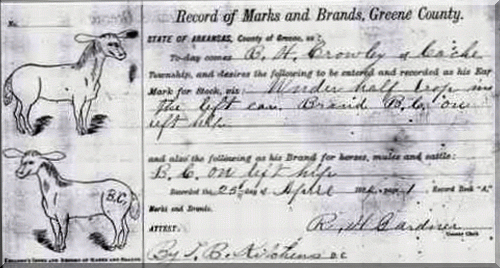 Record of Marks and Brands, Greene County.
STATE OF ARKANSAS, County of Greene, ss:
To-day comes B. H. Crowley of Cache
Township, and desires the following to be entered and recorded as his Ear
Mark for Stock, viz: Under half crop in
the left ear. Brand B.C. on
left hip
and also the following as his Brand for horses, mules and cattle:
B.C. on left hip
B.C.
Recorded the 25th day of April 1 Record Book "A,"
Marks and Brands.
R. H. Gardner
County Clerk
ATTEST:
By T. B. Kitchens D.C.
RECORD OF MARKS AND BRANDS